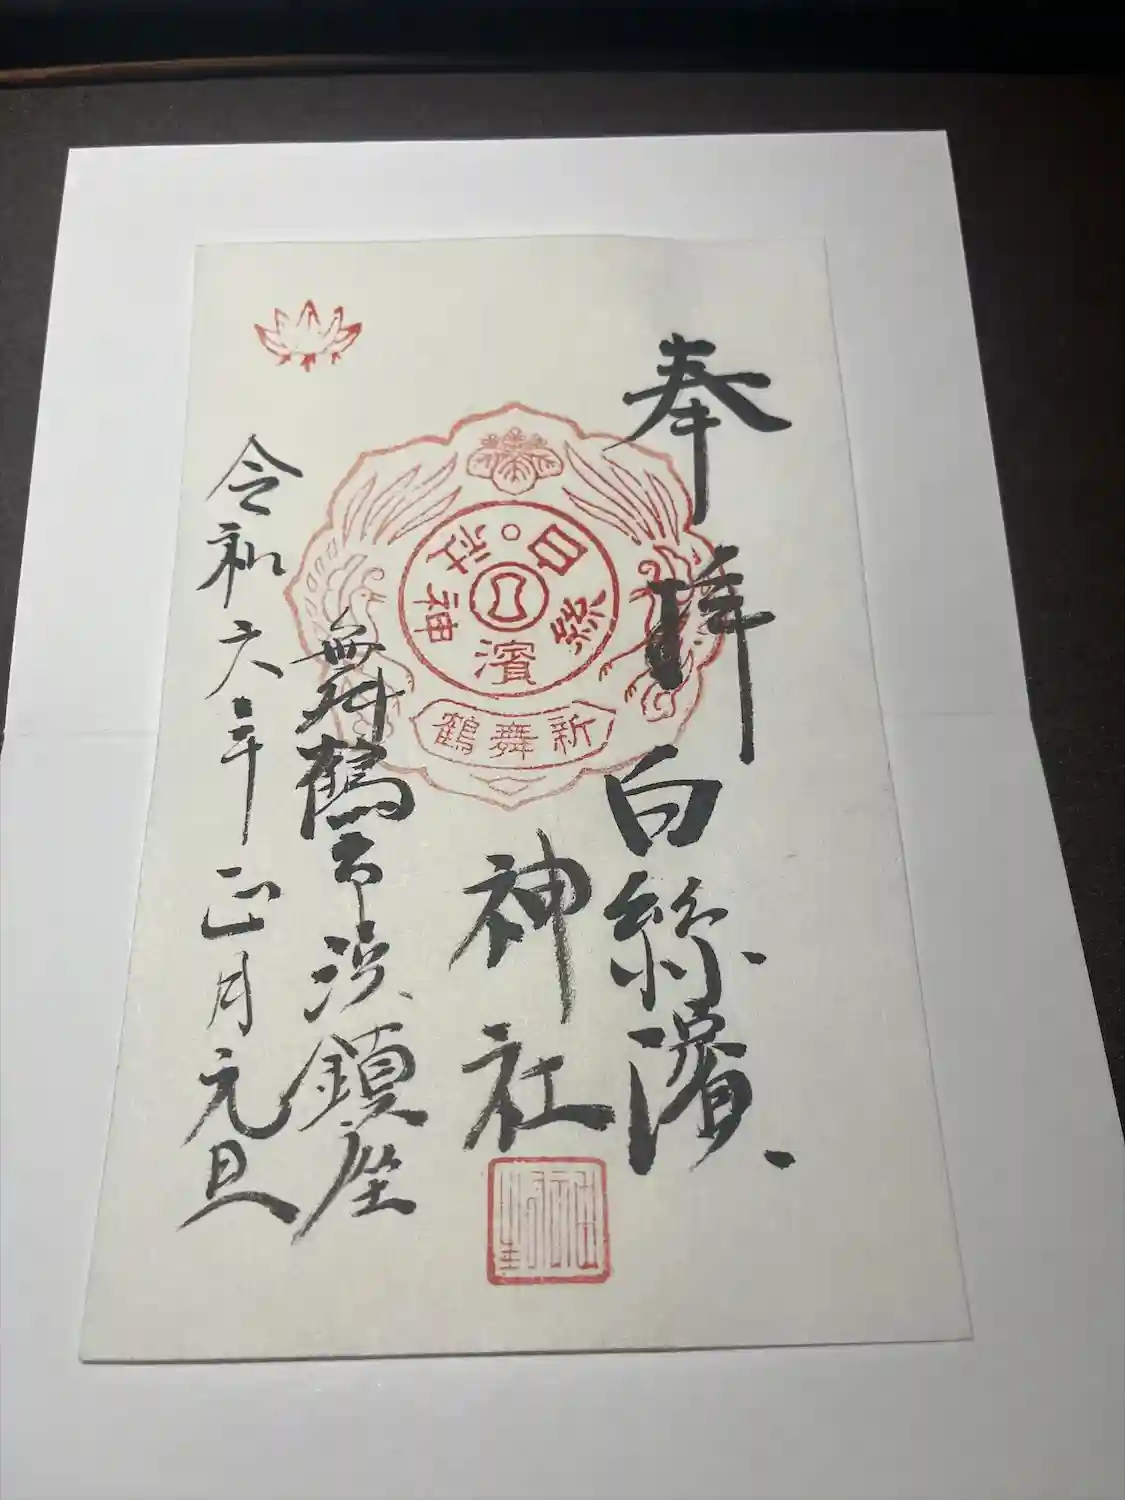 奉拝
白絲濱
神社
舞鶴市浜鎮座
令和六年正月元旦
白絲濱神社
新舞鶴